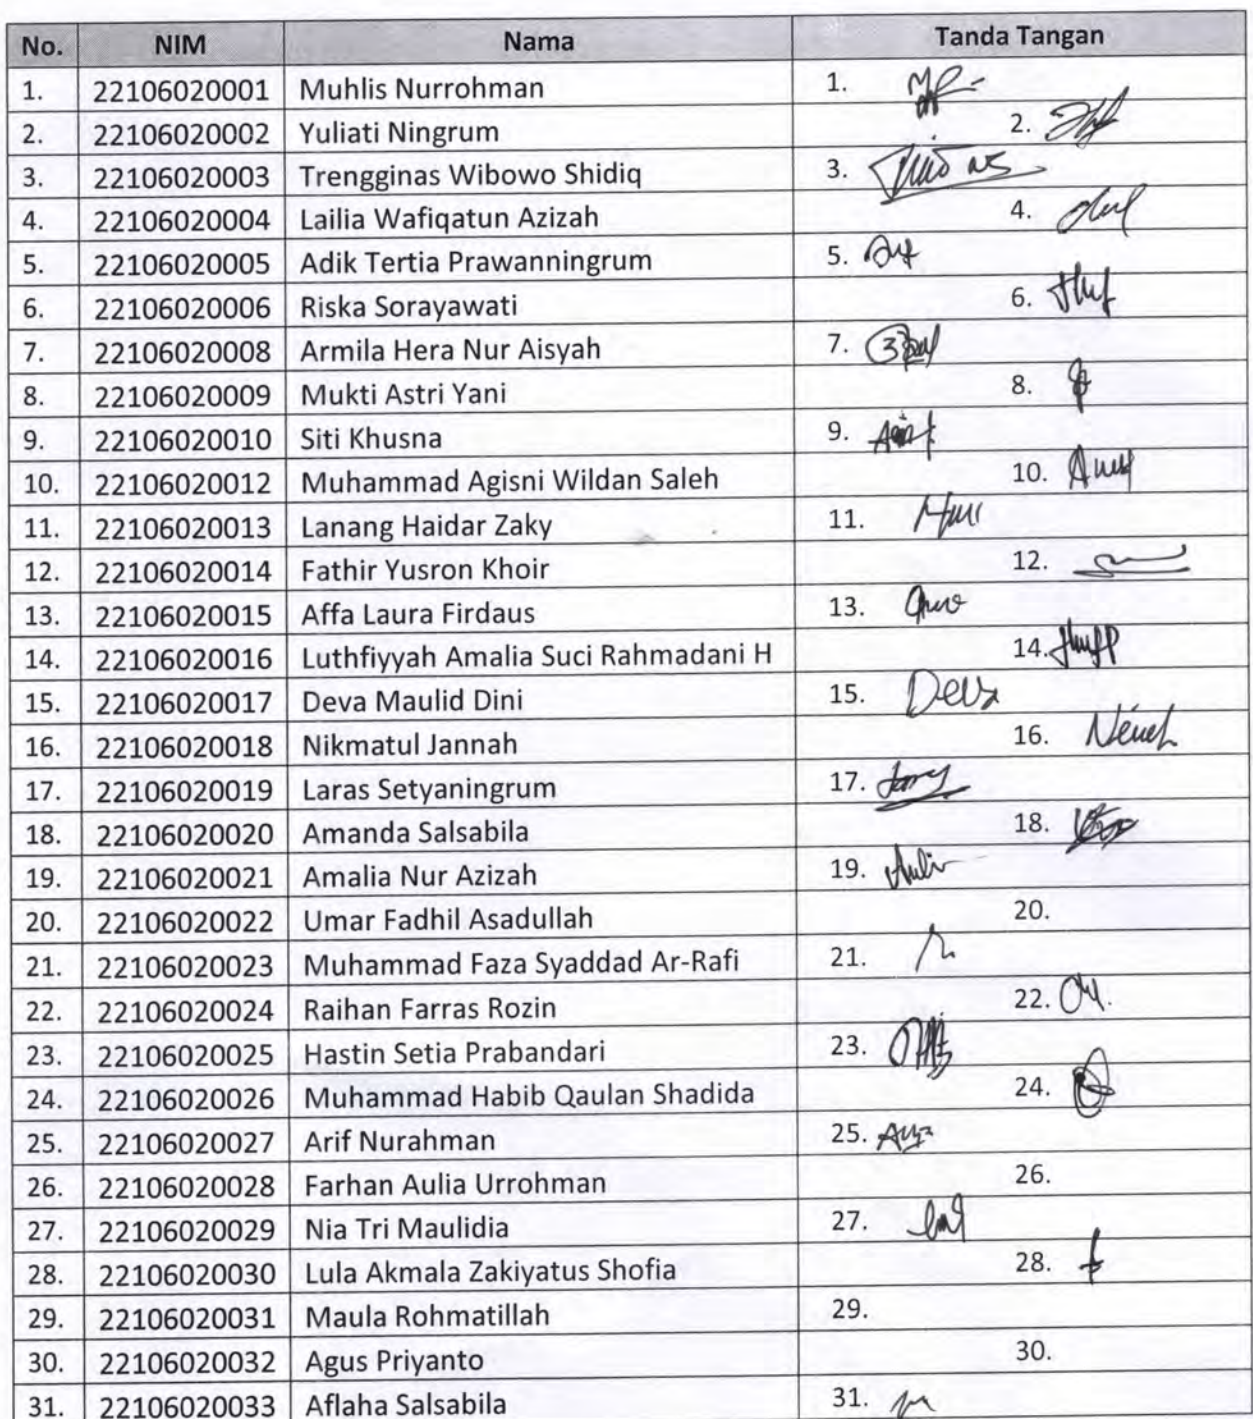 No. NIM Nama Tanda Tangan
1. 22106020001 Muhlis Nurrohman 1.
2. 22106020002 Yuliati Ningrum 2.
3. 22106020003 Trengginas Wibowo Shidiq 3.
4. 22106020004 Lailia Wafiqatun Azizah 4.
5. 22106020005 Adik Tertia Prawanningrum 5.
6. 22106020006 Riska Sorayawati 6.
7. 22106020008 Armila Hera Nur Aisyah 7.
8. 22106020009 Mukti Astri Yani 8.
9. 22106020010 Siti Khusna 9.
10. 22106020012 Muhammad Agisni Wildan Saleh 10.
11. 22106020013 Lanang Haidar Zaky 11.
12. 22106020014 Fathir Yusron Khoir 12.
13. 22106020015 Affa Laura Firdaus 13.
14. 22106020016 Luthfiyyah Amalia Suci Rahmadani H 14.
15. 22106020017 Deva Maulid Dini 15. Deva
16. 22106020018 Nikmatul Jannah 16.
17. 22106020019 Laras Setyaningrum 17.
18. 22106020020 Amanda Salsabila 18.
19. 22106020021 Amalia Nur Azizah 19.
20. 22106020022 Umar Fadhil Asadullah 20.
21. 22106020023 Muhammad Faza Syaddad Ar-Rafi 21.
22. 22106020024 Raihan Farras Rozin 22.
23. 22106020025 Hastin Setia Prabandari 23.
24. 22106020026 Muhammad Habib Qaulan Shadida 24.
25. 22106020027 Arif Nurahman 25.
26. 22106020028 Farhan Aulia Urrohman 26.
27. 22106020029 Nia Tri Maulidia 27.
28. 22106020030 Lula Akmala Zakiyatus Shofia 28.
29. 22106020031 Maula Rohmatillah 29.
30. 22106020032 Agus Priyanto 30.
31. 22106020033 Aflaha Salsabila 31.